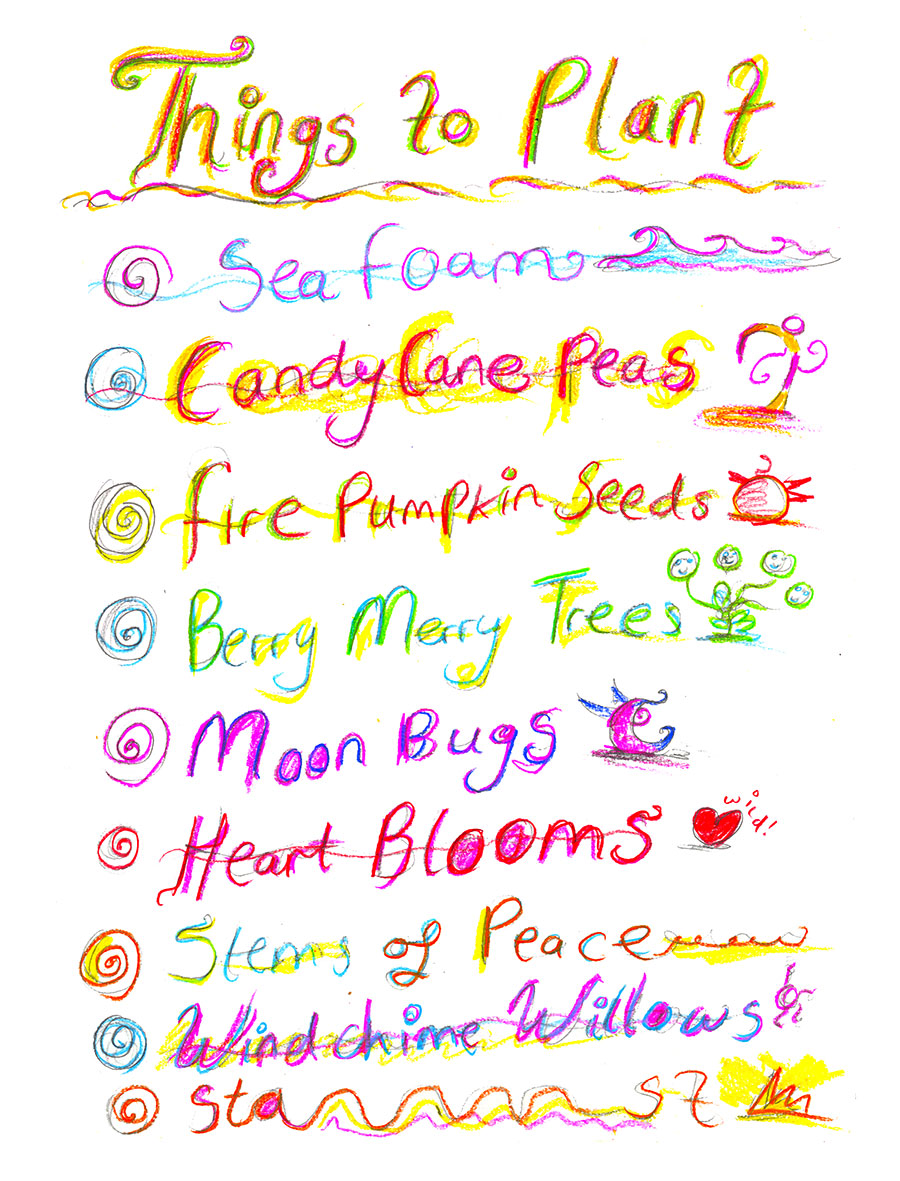 Things to Plant
Sea foam
Candy Cane Peas
fire Pumpkin Seeds
Berry Merry Trees
Moon Bugs
Heart Blooms wild!
Stems of Peace
Windchime Willows